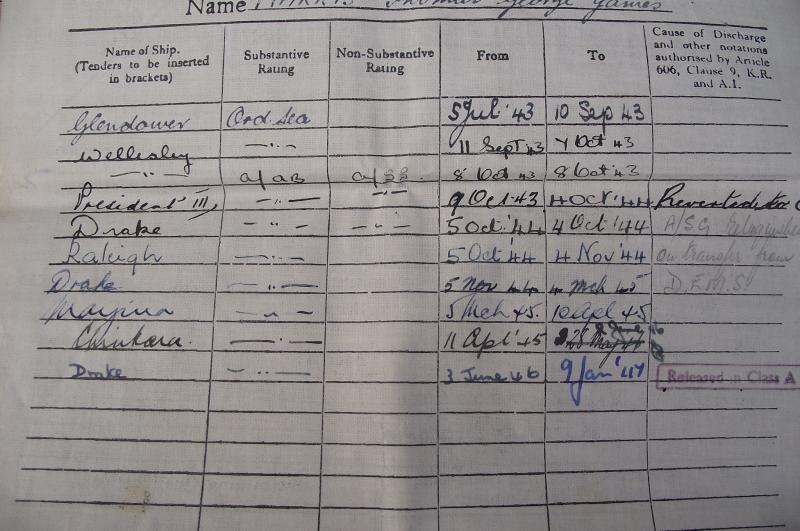 Name Thomas George James
Name of Ship. (Tenders to be inserted in brackets) Substantive Rating Non-Substantive Rating From To Cause of Discharge and other notations authorised by Article 606, Clause 9, K.R. and A.I.
Glendower Ord. Sea 5 Jul '43 10 Sep 43
Wellesley —"— 11 Sept 43 7 Oct 43
—"— a/ AB a/ 8 Oct 43 8 Oct 43
President III, —"— —"— 9 Oct 43 4 Oct '44
Drake —"— —"— 5 Oct '44 4 Oct '44 A/S.G.
Raleigh —"— 5 Oct '44 4 Nov '44 on transfer from
Drake —"— 5 Nov 44 4 Mch 45 D.E.M.S.
—"— 5 Mch 45. 10 Apl 45
Chinkara. —"— 11 Apl '45
Drake —"— 3 June 46 9 Jan '47 Released in Class A